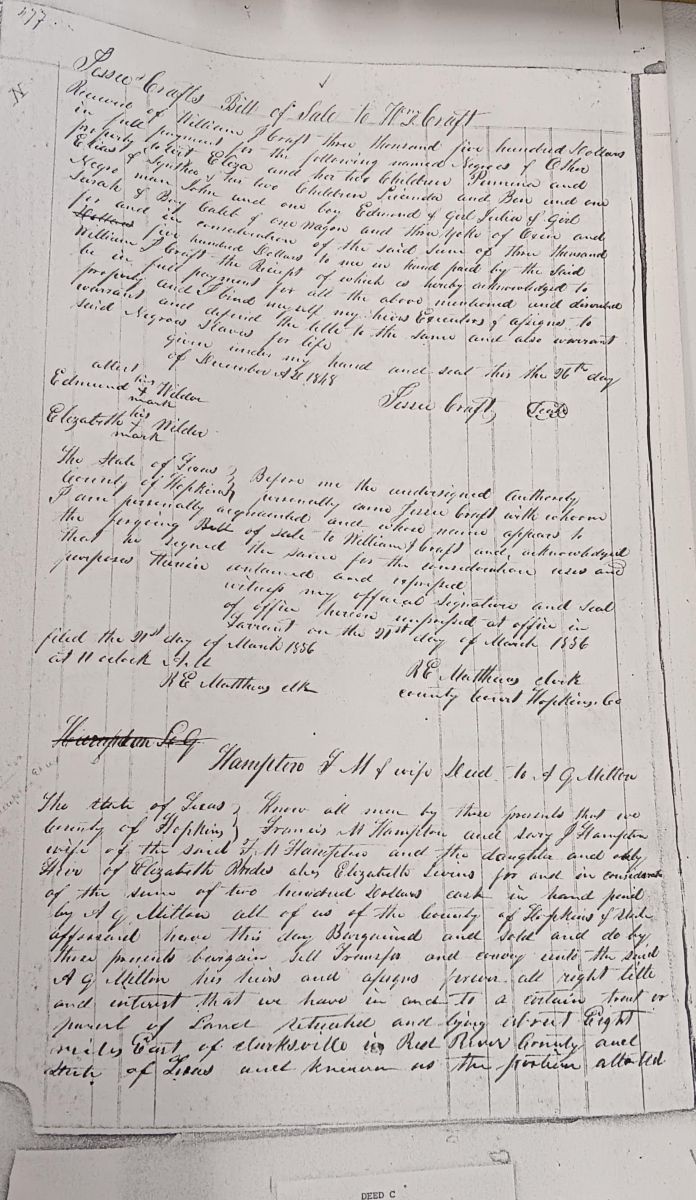 477
N
Jesse Crafts Bill of Sale to Wm J Craft
Received of William J Craft three thousand five hundred Dollars
in full payment for the following named Negroes & Other
property to wit Eliza and her two Children Permina and
Elias & Synthia & her two Children Lucinda and Ben and one
Negro man John and one boy Edmund & Girl Julia & Girl
Sarah & Boy Calet & one wagon and three yoke of Oxen and
for and in consideration of the said sum of three thousand
Dollars five hundred Dollars to me in hand paid by the said
William J Craft the Receipt of which is hereby acknowledged to
be in full payment for all the above mentioned and described
property and I bind myself my heirs Executors & assigns to
warrant and defend the title to the same and also warrant
said Negroes Slaves for life
given under my hand and seal this the 26th day
of December AD 1848
attest
Jesse Craft Seal
Edmund his X mark Wilder
Elizabeth his X mark Wilder
The State of Texas } Before me the undersigned Authority
County of Hopkins } personally came Jesse Craft with whom
I am personally acquainted and whose name appears to
the forgoing Bill of sale to William J Craft and acknowledged
that he signed the same for the consideration uses and
purposes therein contained and expressed
witness my official signature and seal
of office hereon impressed at office in
Tarrant on the 21st day of March 1856
filed the 21st day of March 1856
at 11 oclock A.M
R E Matthews clerk
R E Matthews clk
county Court Hopkins Co
Hampton
Hampton F M & wife Deed to A G Milton
The state of Texas } Know all men by these presents that we
County of Hopkins } Francis M Hampton and Sary J Hampton
wife of the said F M Hampton and the daughter and only
Heir of Elizabeth Rhodes alias Elizabeth Levins for and in consideration
of the sum of two hundred Dollars cash in hand paid
by A G Milton all of us of the County of Hopkins & State
afforesaid have this day Bargained and sold and do by
these presents bargain sell Transfer and convey unto the said
A G Milton his heirs and assigns forever all right title
and interest that we have in and to a certain tract or
parcel of Land situated and lying about Eight
miles East of Clarksville in Red River County and
State of Texas and known as the portion allotted
DEED C